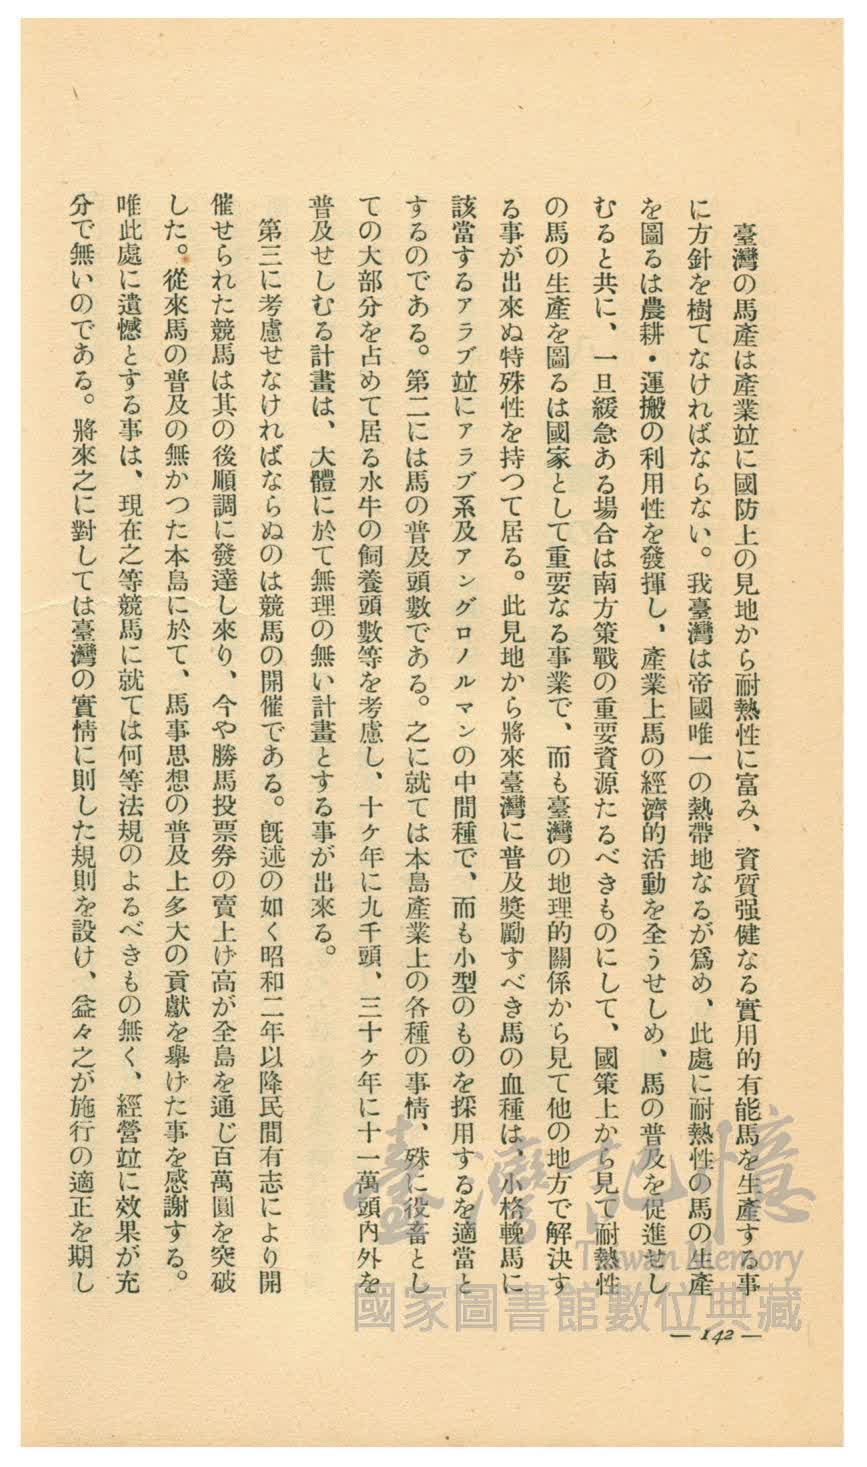 臺灣の馬產は產業竝に國防上の見地から耐熱性に富み、資質强健なる實用的有能馬を生產する事
に方針を樹てなければならない。我臺灣は帝國唯一の熱帶地なるが爲め、此處に耐熱性の馬の生產
を圖るは農耕・運搬の利用性を發揮し、產業上馬の經濟的活動を全うせしめ、馬の普及を促進せし
むると共に、一旦緩急ある場合は南方策戰の重要資源たるべきものにして、國策上から見て耐熱性
の馬の生產を圖るは國家として重要なる事業で、而も臺灣の地理的關係から見て他の地方で解決す
る事が出來ぬ特殊性を持つて居る。此見地から將來臺灣に普及獎勵すべき馬の血種は、小格輓馬に
該當するアラブ竝にアラブ系及アングロノルマンの中間種で、而も小型のものを採用するを適當と
するのである。第二には馬の普及頭數である。之に就ては本島產業上の各種の事情、殊に役畜とし
ての大部分を占めて居る水牛の飼養頭數等を考慮し、十ケ年に九千頭、三十ケ年に十一萬頭內外を
普及せしむる計畫は、大體に於て無理の無い計畫とする事が出來る。
第三に考慮せなければならぬのは競馬の開催である。旣述の如く昭和二年以降民間有志により開
催せられた競馬は其の後順調に發達し來り、今や勝馬投票券の賣上げ高が全島を通じ百萬圓を突破
した。從來馬の普及の無かつた本島に於て、馬事思想の普及上多大の貢獻を擧げた事を感謝する。
唯此處に遺憾とする事は、現在之等競馬に就ては何等法規のよるべきもの無く、經營竝に效果が充
分で無いのである。將來之に對しては臺灣の實情に則した規則を設け、益々之が施行の適正を期し
— 142 —
臺灣記憶
Taiwan Memory
國家圖書館數位典藏